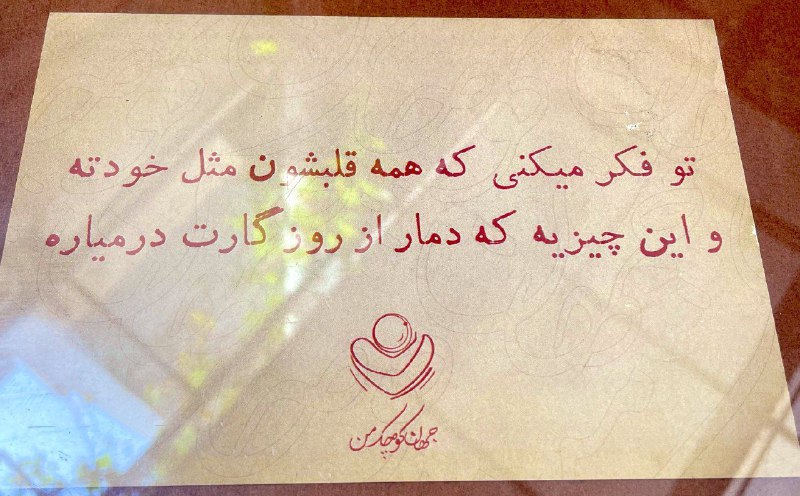 تو فکر میکنی که همه قلبشون مثل خودته
و این چیزیه که دمار از روز گارت درمیاره
جهان کوچک من